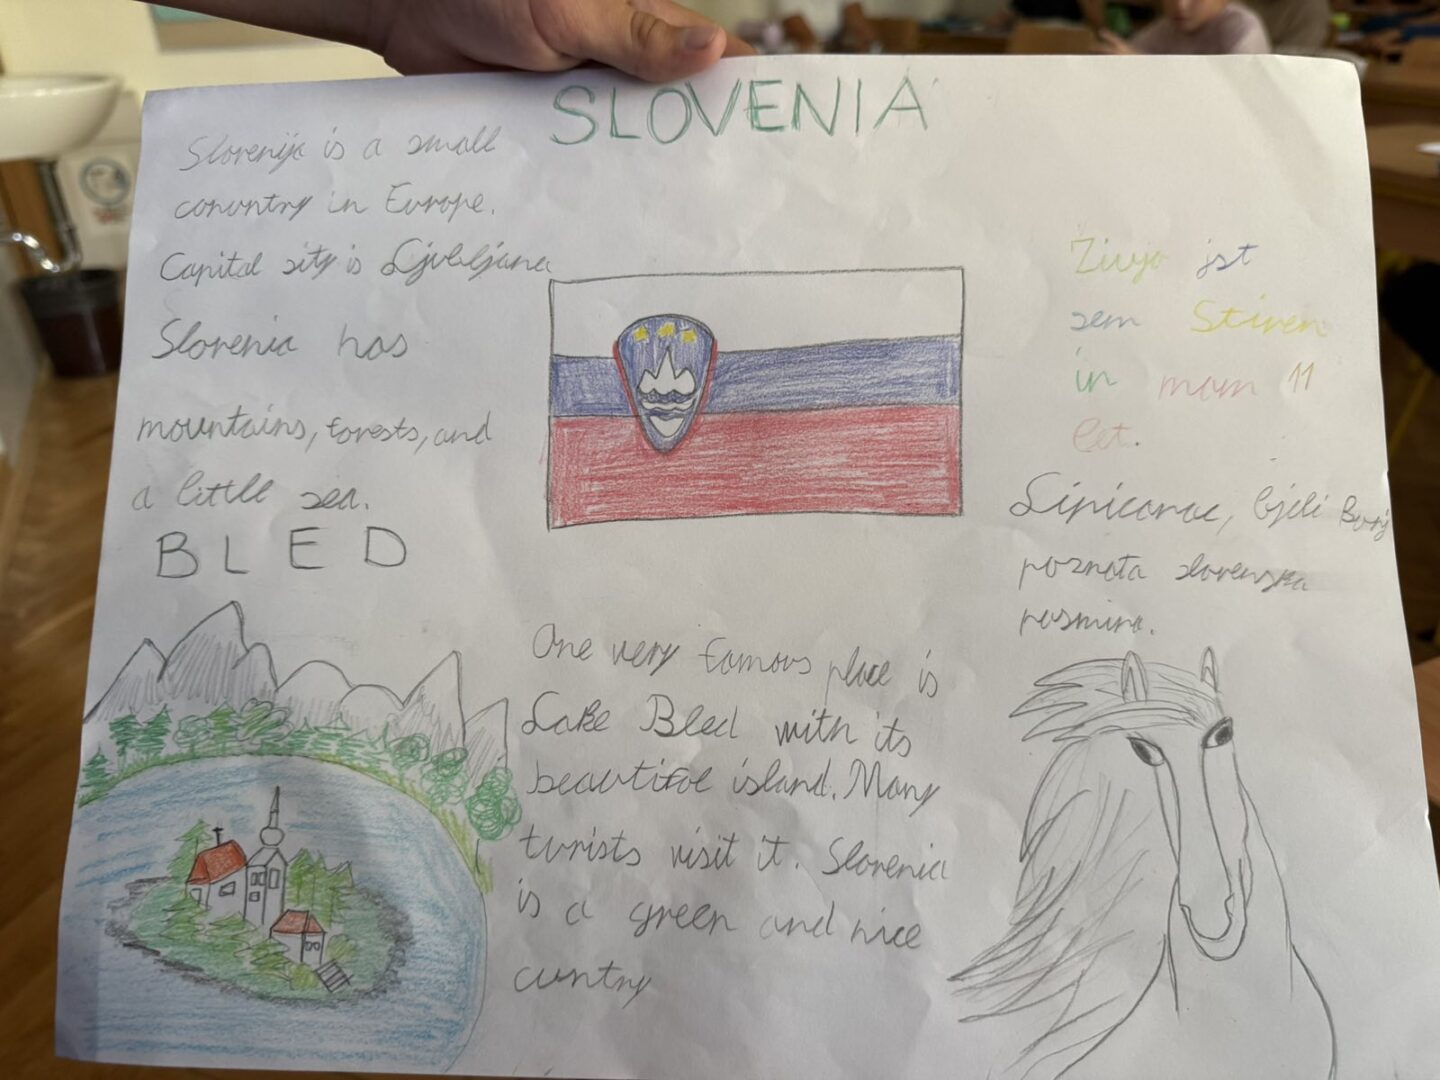 SLOVENIA
Slovenija is a small
conuntry in Europe.
Capital sity is Ljubljana
Slovenia has
mountains, forests, and
a little sea.
BLED
One very famous place is
Lake Bled with its
beautifoe island. Many
turists visit it. Slovenia
is a green and nice
cuntry
Zivjo jst
sem Stiven
in mam 11
let.
Lipicanac, bjeli
poznata slovenska
pasmina.